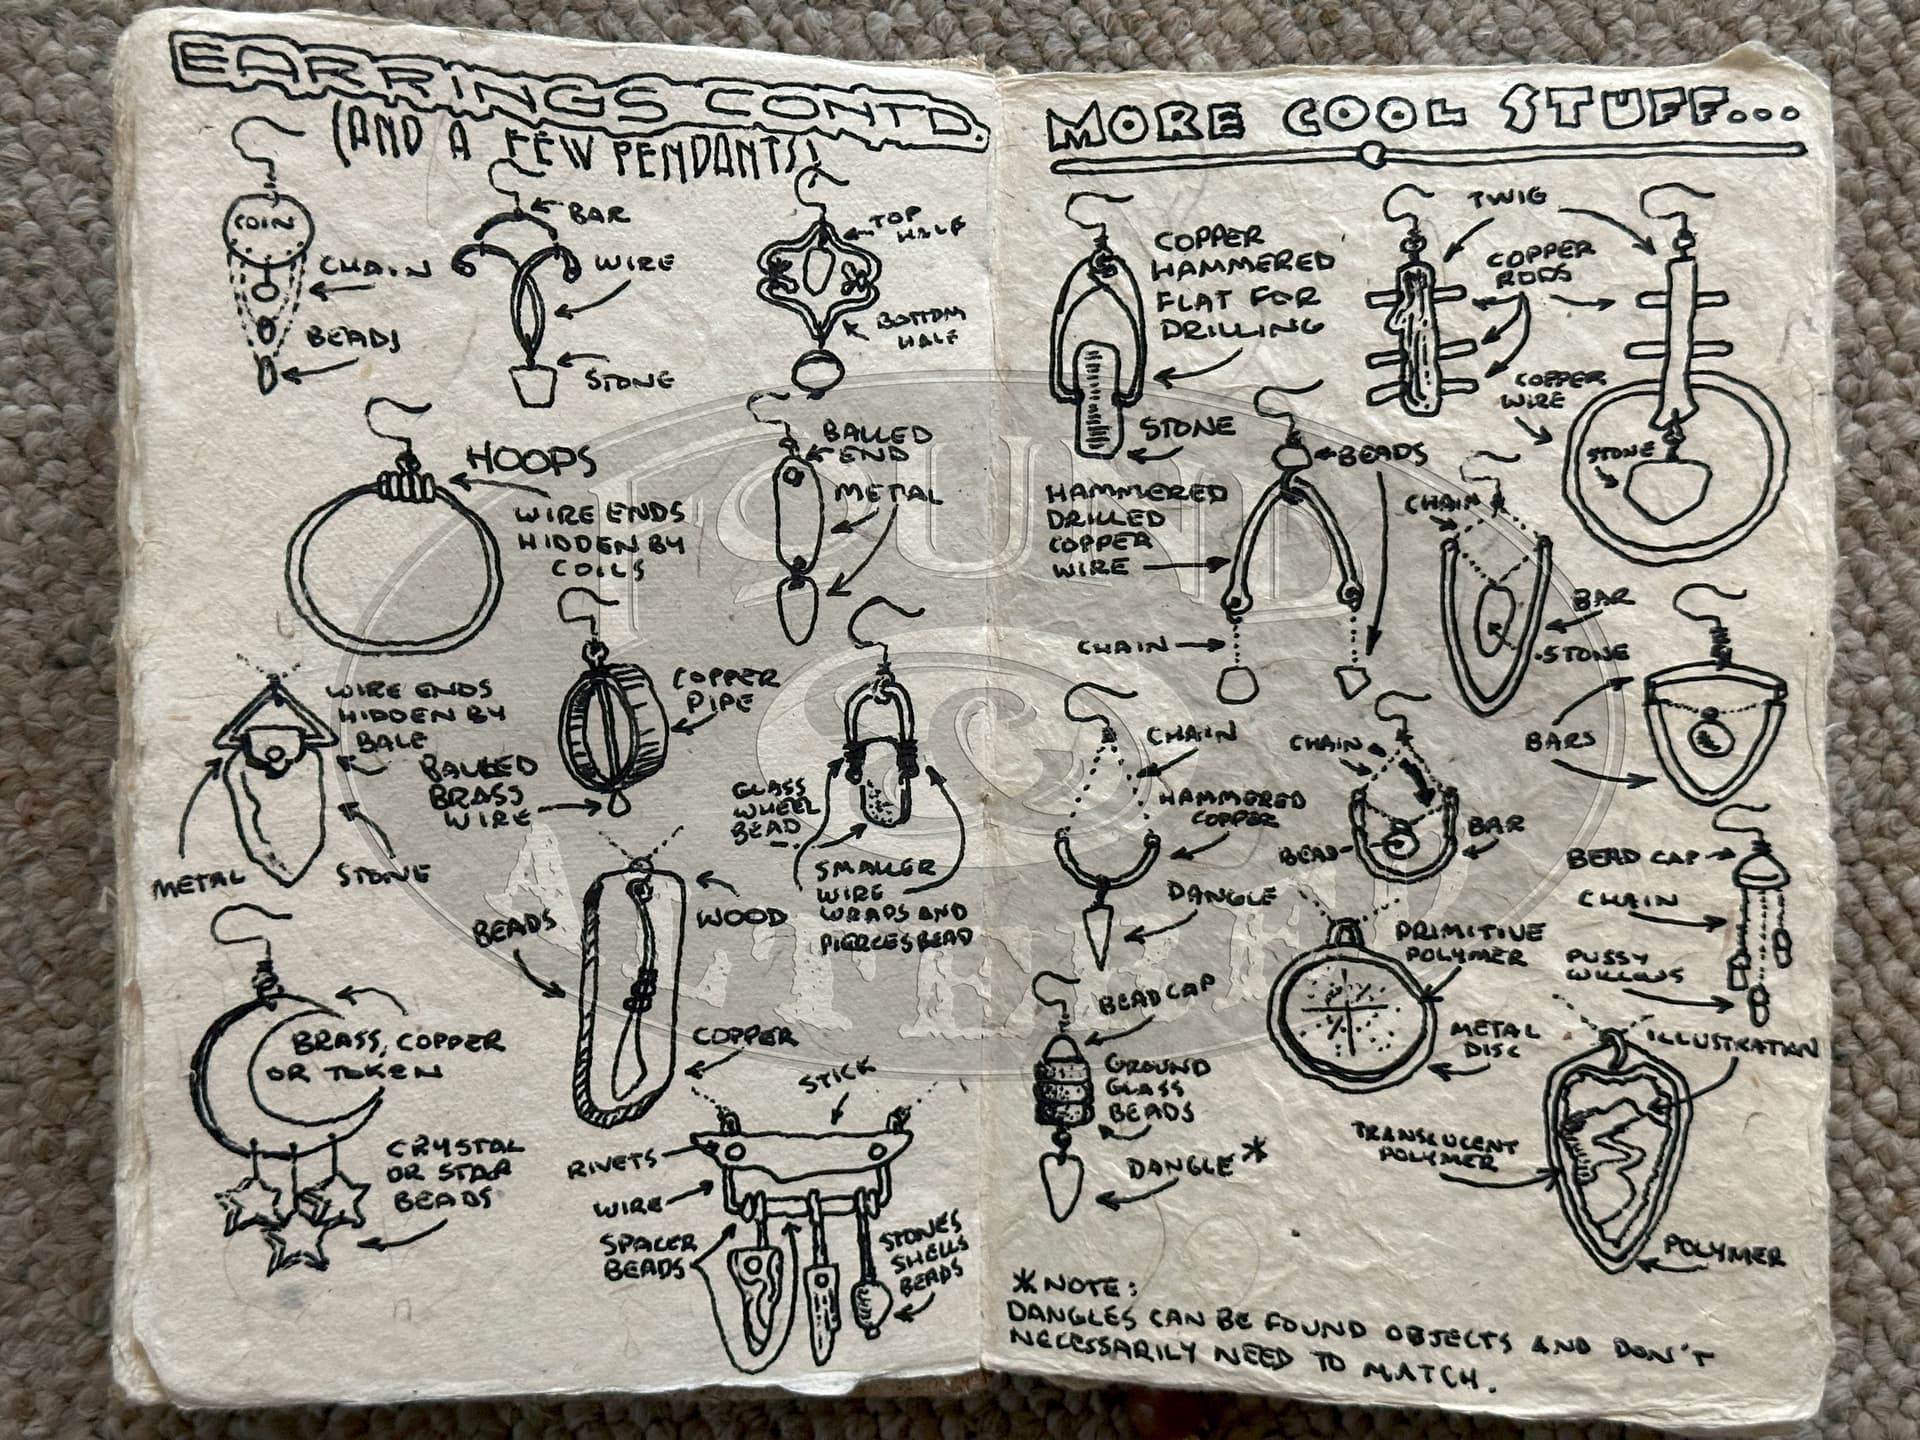 EARRINGS CONTD.
(AND A FEW PENDANTS)
COIN
CHAIN
BEADS
BAR
WIRE
STONE
TOP
HALF
BOTTOM
HALF
HOOPS
WIRE ENDS
HIDDEN BY
COILS
BALLED
END
METAL
WIRE ENDS
HIDDEN BY
BALE
METAL
STONE
COPPER
PIPE
BALLED
BRASS
WIRE
GLASS
WHEEL
BEAD
SMALLER
WIRE
WRAPS AND
PIERCES BEAD
BEADS
WOOD
COPPER
BRASS, COPPER
OR TOKEN
CRYSTAL
OR STAR
BEADS
STICK
RIVETS
WIRE
SPACER
BEADS
STONES
SHELLS
BEADS
MORE COOL STUFF...
COPPER
HAMMERED
FLAT FOR
DRILLING
STONE
TWIG
COPPER
RODS
COPPER
WIRE
STONE
BEADS
HAMMERED
DRILLED
COPPER
WIRE
CHAIN
CHAIN
BAR
STONE
BARS
CHAIN
HAMMERED
COPPER
DANGLE
CHAIN
BEAD
BAR
BEAD CAP
CHAIN
PUSSY
WILLOWS
PRIMITIVE
POLYMER
METAL
DISC
BEADCAP
GROUND
GLASS
BEADS
DANGLE*
ILLUSTRATION
TRANSLUCENT
POLYMER
POLYMER
*NOTE:
DANGLES CAN BE FOUND OBJECTS AND DON'T
NECESSARILY NEED TO MATCH.
FOUND
&
ALTERED